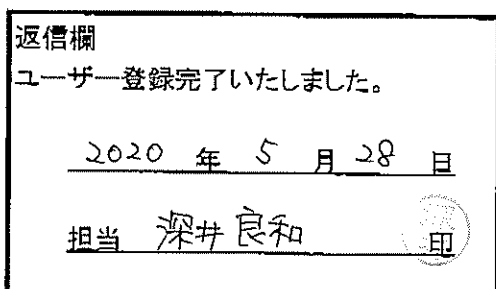 返信欄
ユーザー登録完了いたしました。
2020 年 5 月 28 日
担当 深井良和 印